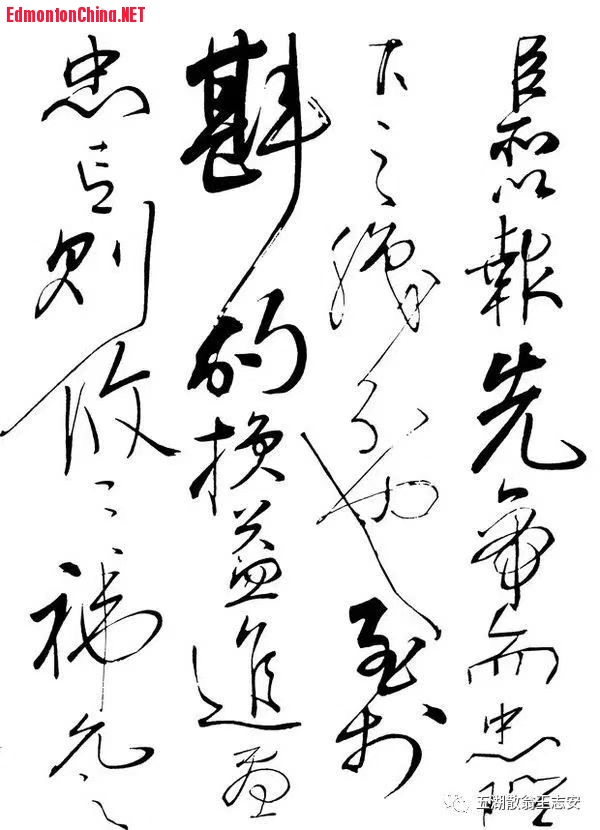 EdmontonChina.NET
臣所以報先帝而忠陛
下之職分也至於
斟酌損益進盡
忠言則攸之禕允之
五湖散翁王志安